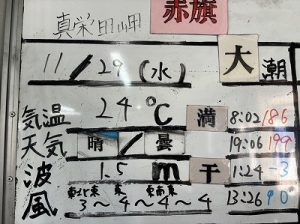 赤旗
真栄田岬
11/29(水) 大潮
気温 24℃ 満 8:02 186
天気 晴/曇 19:06 199
波 1.5m 干 1:24 -3
風 東北東 東 東南東
3~4~4~4 13:26 90